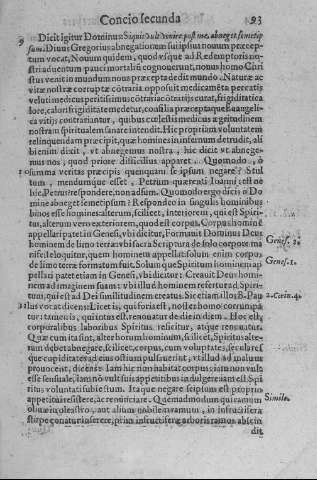 Concio secunda
93
9 Dicit igitur Dominus: Siquis vult venire post me, abneget semetip
sum. Diuus Gregorius abnegationem sui ipsius nouum præcep
tum vocat, Nouum quidem, quod vsque ad Redemptoris no
stri aduentum pauci mortaliū cognouerunt, nouus homo Chri
stus venit in mundum noua præcepta dedit mundo. Naturæ ac
vitæ nostræ corruptæ cōtraria opposuit medicaméta percatis
velut medicus peritissimus cōtraria cōtrarijs curat, frigiditati ca
lore, calori frigiditate medetur, consilia præceptaque Euangeli-
ca vitijs contrariantur, quibus cœlestis medicus ægritudinem
nostram spiritualem sanare intendit. Hic propriam voluntatem
relinquendam præcipit, quæ homines in infernum detrudit, ali
bi enim dixit, vt abnegemus nostra, hic dicit vt abnege-
mus nos, quod priore difficilius apparet. Quomodo, ò
summa veritas præcipis quenquam se ipsum negare? Stul
tum, mendumque esset, Petrum quærenti Ioanni, est ne
hic Petrus respondere, non adsum. Quomodo ergo dicis ò Do
mine abneget semetipsum? Respondeo in singulis hominibus
binos esse homines alterum, scilicet, interiorem, qui est Spiri-
tus, alterum vero exteriorem, quod est corpus. Corpus hominē
appellari patet in Genesi, vbi dicitur, Formauit Dominus Deus
hominem de limo terræ: vbi sacra Scriptura de solo corpore ma
nifeste loquitur, quem hominem appellat: solum enim corpus
de limo terre formatum fuit. Solum quoque Spiritum hominem ap
pellari patet etiam in Genesi, vbi dicitur: Creauit Deus homi-
nem ad imaginem suam: vbi illud hominem refertur ad Spiri-
tum, qui est ad Dei similitudinem creatus. Sic etiam illos B. Pau
lus vocat dicens: Licet is, qui foris est, noster homo corrumpa
tur: tamen is, qui intus est, renouatur de die in diem. Hoc est,
corporalibus laboribus Spiritus reficitur, atque renouatur.
Quæ cum ita sint, alter horum hominum, scilicet, Spiritus alte-
rum debet abnegare, scilicet, corpus, cum voluptates, seculares
que cupiditates ad eius ostium pulsuerint, vt illud ad malum
prouocent, dicens: Iam hic non habitat corpus: iam non vult
esse sensuale, iam nō vult suis appetitibus indulgere: iam est Spi
ritui, voluntati subiectum. Itaque negare seipsum est proprio
appetitui resistere, ac renunciare. Quemadmodum qui ramum
oliuæ in oleastro, aut alium nobilem ramum, in infructifera
stirpe conatur inserere, prius infructiferæ arboris ramos abscin
dit
Genes. 2.
Genes. 1.
2. Corin. 4.
Simile.